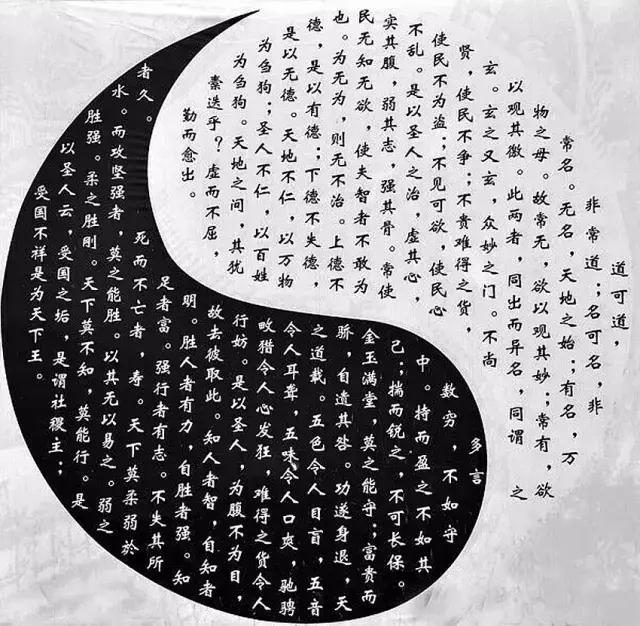 道可道，
非常道；名可名，非
常名。无名，天地之始；有名，万
物之母。故常无，欲以观其妙；常有，欲
以观其徼。此两者，同出而异名，同谓 之
玄。玄之又玄，众妙之门。不尚
贤，使民不争；不贵难得之货，
使民不为盗；不见可欲，使民心
不乱。是以圣人之治，虚其心，
实其腹，弱其志，强其骨。常使
民无知无欲，使夫智者不敢为
也。为无为，则无不治。上德不
德，是以有德；下德不失德，
是以无德。天地不仁，以万物
为刍狗；圣人不仁，以百姓
为刍狗。天地之间，其犹
橐迭乎？虚而不屈，
勤而愈出。
多言
数穷，不如守
中。持而盈之不如其
己；揣而锐之，不可长保。
金玉满堂，莫之能守；富贵而
骄，自遗其咎。功遂身退，天
之道载。五色令人目盲，五音
令人耳聋，五味令人口爽，驰骋
畋猎令人心发狂，难得之货令人
行妨。是以圣人，为腹不为目，
故去彼取此。知人者智，自知者
明。胜人者有力，自胜者强。知
足者富。强行者有志。不失其所
者久。 死而不亡者，寿。天下莫柔弱於
水。而攻坚强者，莫之能胜。以其无以易之。弱之
胜强。柔之胜刚。天下莫不知，莫能行。是
以圣人云，受国之垢，是谓社稷主；
受国不祥是为天下王。